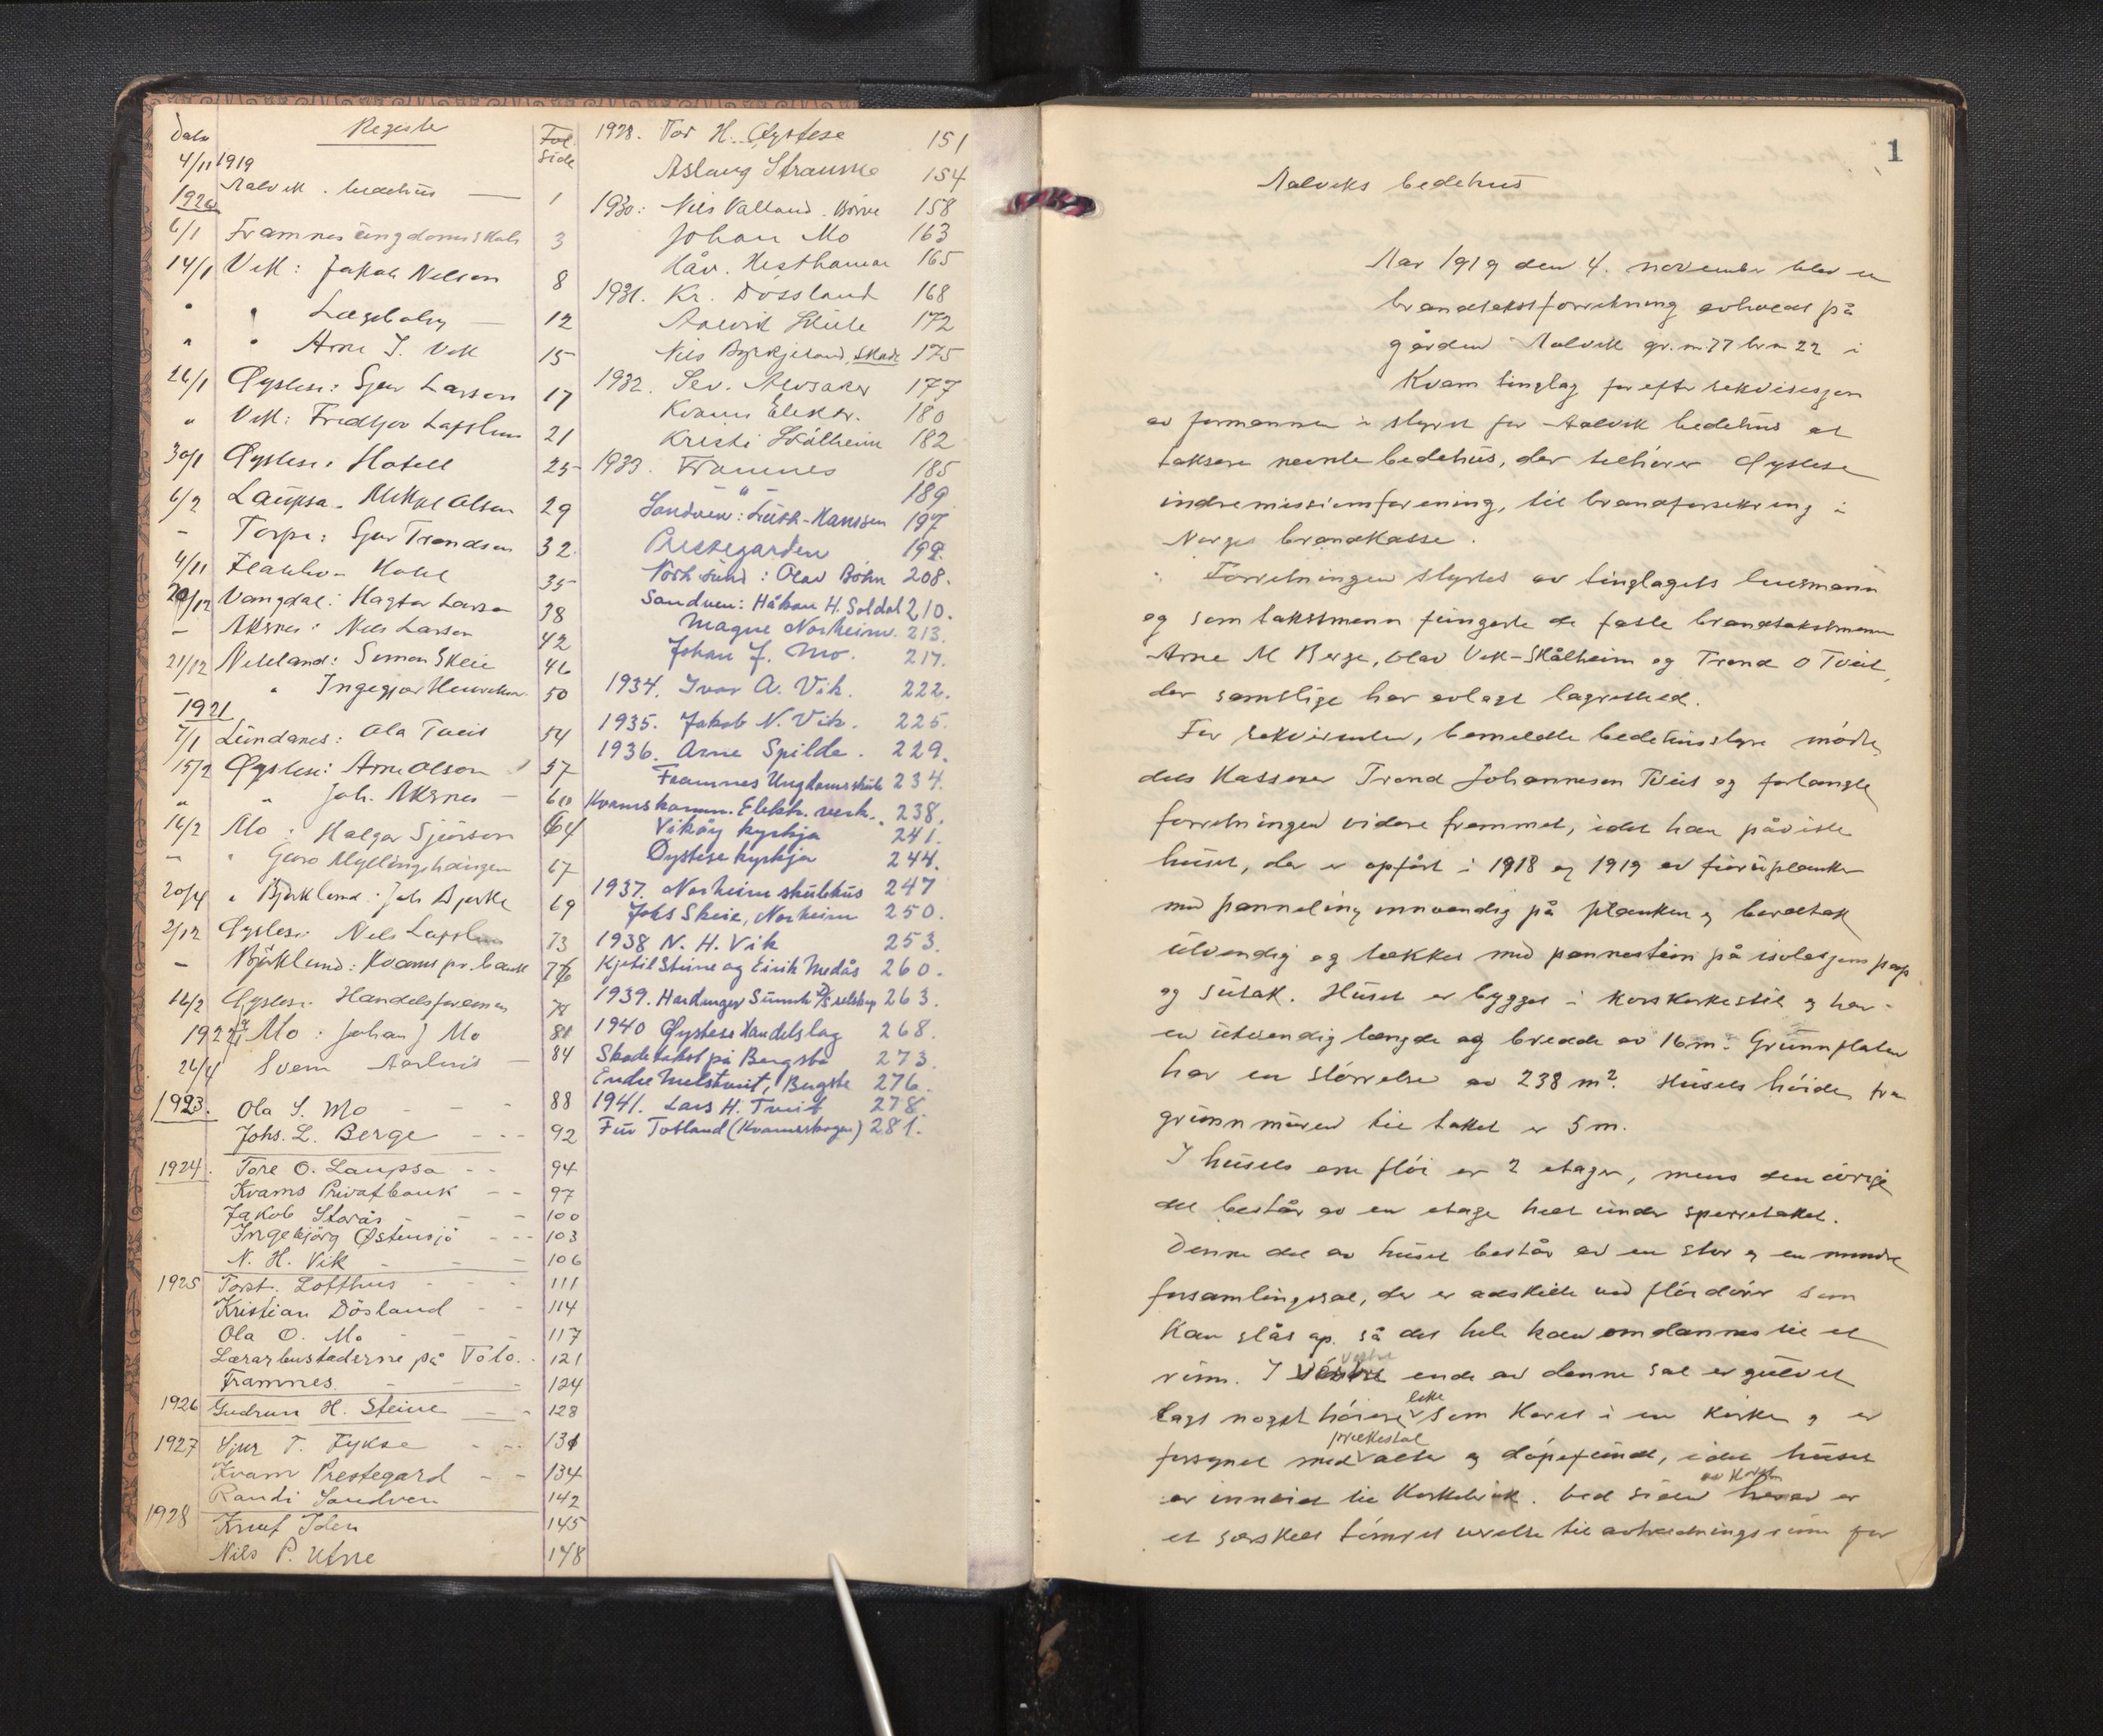 Dato Register Fol. Side
4/11 1919
Aalvik bedehus — 1
1920
6/1 Framnes ungdomsskule 3
14/1 Vik: Jakob Nelson 8
" " Lægebolig — 12
" " Arne J. Vik 15
26/1 Øystese: Sjur Larson 17
" Vik: Fredtjov Laffslun 21
30/1 Øystese: Hotell 25
6/2 Laupsa - Mikkel Olson 29
- Torpe: Sjur Trondson 32
4/11 Hotel 35
20/12 Vangdal: Hagtor Larson 38
- Aksnes: Nils Larson 42
21/12 Neteland: Simon Skeie 46
- " Ingegjær 50
1921
7/1 Lundanes: Ola Tveit 54
15/2 Øystese: Arne Olson 57
" " Joh. Aksnes — 60
16/2 Mo: Halgar Sjurson 64
- " Guro Myllingshaugen 67
20/4 " Bjørklund: Joh Bjerke 69
2/12 Øystese Nils Laffslun 73
- Bjørklund: Kvams pr. bank 76
16/2 Øystese. Handelsforening 78
1922 Mo: Johan J Mo 81
24/4 Svein Aarhus — 84
1923. Ola S. Mo - - - 88
Johs. L. Berge - - - 92
1924. Tore O. Laupsa - - 94
Kvams Privatbank - - 97
Jakob Storås - - 100
Ingebjörg Østensjö - - - 103
N. H. Vik - - - 106
1925 Torst. Lofthus - - - 111
Kristian Dösland - - 114
Ola O. Mo - - - 117
Lærarbustaderne på Tolo. - 121
Framnes. - - - 124
1926 Gudrun H. Steine - - 128
1927 Sjur T. Fykse - - - 131
Kvam Prestegard - - 134
Randi Sandven 142
1928 Knut Iden 145
Nils P. Utne 148
1928. Tor H. Øystese 151
Aslaug Straume 154
1930: Nils Valland. Börve 158
Johan Mo 163
Håv. Hesthamar 165
1931. Kr. Dossland 168
Aalvik Skule 172
Nils Byrkjeland, Skade 175
1932. Sev. Alvsaker 177
Kvams Elektr. 180
Kristi Skålheim 182
1933. Framnes 185
- " - 189
Sandven: -Hanssen 197
Prestegarden 199.
Norheimsund: Olav Böhn 208.
Sandven: Håkon H. Soldal 210.
Magne Norheim. 213.
Johan J. Mo. 217.
1934. Ivar A. Vik. 222.
1935. Jakob N. Vik. 225.
1936. Arne Spilde. 229.
Framnes Ungdomsskule 234.
Kvams komm. Elektr. verk. 238.
Vikøy kyrkja 241.
Øystese kyrkja 244.
1937. Norheim skulehus 247
Johs Skeie, Norheim 250.
1938 N. H. Vik 253.
Kjetil Steine og Eirik Medås 260.
1939. Hardanger Sunnh D/S selskap 263.
1940 Øystese Handelslag 268.
Skadetakst på Bergstø 273.
Endre Melstveit, Bergstø 276.
1941. Lars H. Tveit 278.
Finn Totland (Kvamskogen) 281.
1
Aalviks bedehus
Aar 1919 den 4. november blev en
brandtakstforretning avholdt på
gården Aalvik gr. nr 77 br. nr 22 i
Kvam tinglag for efter rekvisisjon
av formannen i styret for Aalvik bedehus at
taksere nevnte bedehus, der tilhører Øystese
indremissionsforening, til brandforsikring i
Norges brandkasse.
Forretningen styrtes av tinglagets lensmann
og som takstmenn fungerte de faste brandtakstmenn
Arne M Berge, Olav Vik-Skålheim og Trond O Tveit,
der samtlige har avlagt lagretteed.
For rekvirenten, bemeldte bedehusstyre mötte
dets kasserer Trond Johanneson Tveit og forlangte
forretningen videre fremmet, idet han påviste
huset, der er opfört i 1918 og 1919 av furuplanker
med panneling innvendig på planken og bordtak
utvendig og tækket med pannestein på isolasjonspap
og sutak. Huset er bygget i korskirkestil og har
en utvendig længde og bredde av 16 m. Grunnflaten
har en störrelse av 238 m². Husets höide fra
grunnmuren til taket er 5 m.
I husets ene flöi er 2 etager, mens den övrige
del består av en etage helt under sperretaket.
Denne del av huset består av en stor og en mindre
forsamlingssal, der er adskilt ved flöidörer som
kan slås op. så det hele kan omdannes til et
rum. I vestre ende av denne sal er gulvet
lagt noget höiere like som koret i en kirke og er
forsynet med prækestol alter og döpefund, idet huset
er innviet til kirkebruk. Ved siden av koret er
et særskilt tömret værelse til avtrædningsrum for